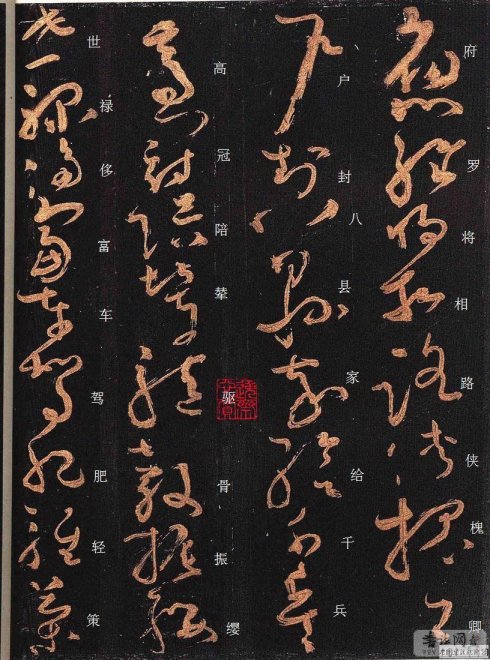 府罗将相路侠槐卿
户封八县家给千兵
高冠陪辇驱骨振缨
世禄侈富车驾肥轻策